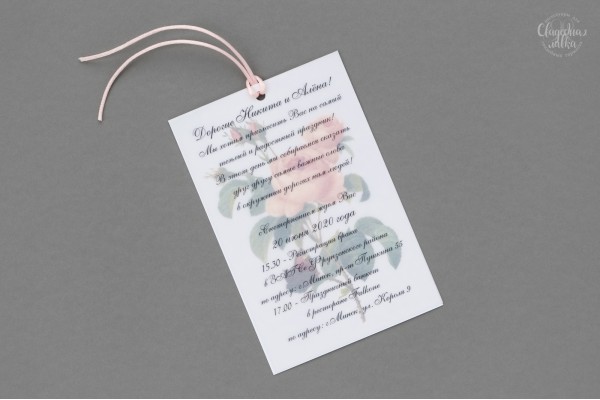 Свадебная
лавка
Дорогие Никита и Алёна!
Мы хотим пригласить Вас на самый
теплый и радостный праздник!
В этот день мы собираемся сказать
друг другу самые важные слова
в окружении дорогих нам людей!
С нетерпением ждем Вас
20 июня 2020 года
15.30 – Регистрация брака
в ЗАГСе Фрунзенского района
по адресу: г.Минск, пр-т Пушкина 55
17.00 – Праздничный банкет
в ресторане Falcone
по адресу: г.Минск, ул. Короля 9